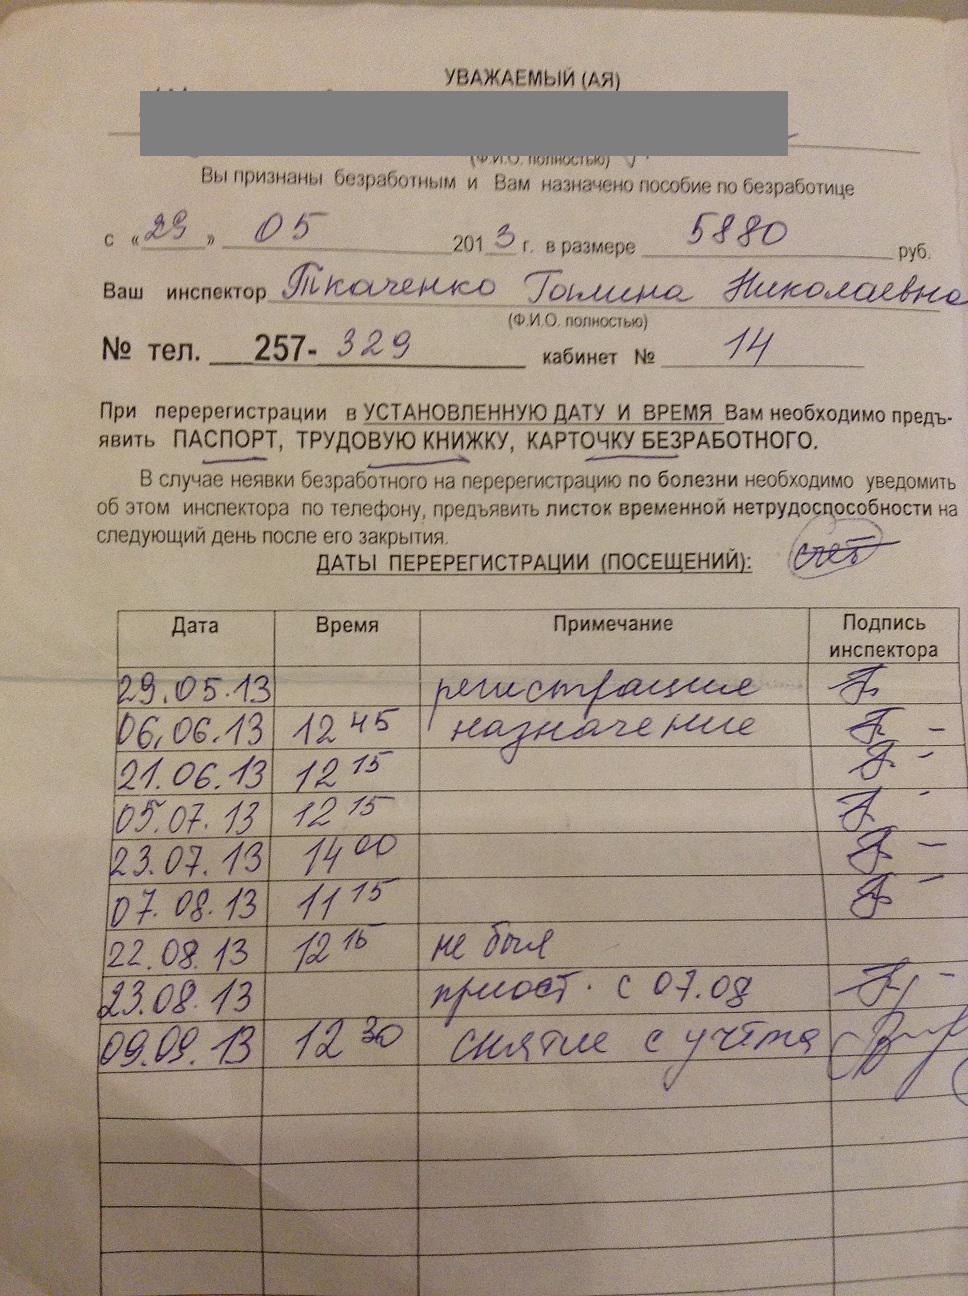 УВАЖАЕМЫЙ (АЯ)
(Ф.И.О. полностью)
Вы признаны безработным и Вам назначено пособие по безработице
с «29» 05 2013 г. в размере 5880 руб.
Ваш инспектор Ткаченко Галина Николаевна
(Ф.И.О. полностью)
№ тел. 257-329 кабинет № 14
При перерегистрации в УСТАНОВЛЕННУЮ ДАТУ И ВРЕМЯ Вам необходимо предъ-
явить ПАСПОРТ, ТРУДОВУЮ КНИЖКУ, КАРТОЧКУ БЕЗРАБОТНОГО.
В случае неявки безработного на перерегистрацию по болезни необходимо уведомить
об этом инспектора по телефону, предъявить листок временной нетрудоспособности на
следующий день после его закрытия.
счет
ДАТЫ ПЕРЕРЕГИСТРАЦИИ (ПОСЕЩЕНИЙ):
Дата Время Примечание Подпись
инспектора
29.05.13 регистрация
06.06.13 12 45 назначение
21.06.13 12 15
05.07.13 12 15
23.07.13 14 00
07.08.13 11 15
22.08.13 12 15 не был
23.08.13 приост. с 07.08
09.09.13 12 30 снятие с учёта